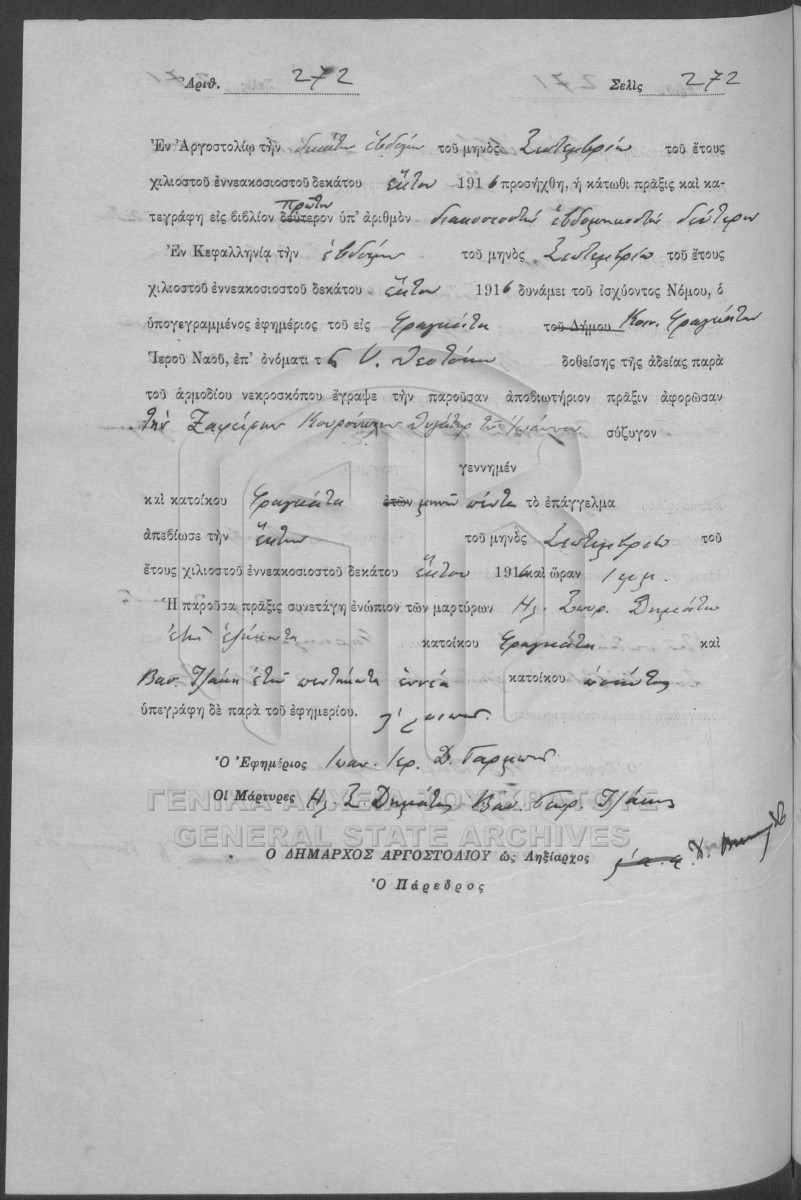 Ἀριθ. 272 Σελὶς 272
Ἐν Ἀργοστολίῳ τὴν δεκάτην ἑβδόμην τοῦ μηνὸς Σεπτεμβρίου τοῦ ἔτους
χιλιοστοῦ ἐννεακοσιοστοῦ δεκάτου ἕκτου 1916 προσήχθη, ἡ κάτωθι πρᾶξις καὶ κα-
πρῶτον
τεγράφη εἰς βιβλίον δεύτερον ὑπ' ἀριθμὸν διακοσιοστὸν ἑβδομηκοστὸν δεύτερον
Ἐν Κεφαλληνίᾳ τὴν ἑβδόμην τοῦ μηνὸς Σεπτεμβρίου τοῦ ἔτους
χιλιοστοῦ ἐννεακοσιοστοῦ δεκάτου ἕκτου 1916 δυνάμει τοῦ ἰσχύοντος Νόμου, ὁ
ὑπογεγραμμένος ἐφημέριος τοῦ εἰς Φραγκάτα τοῦ Δήμου Κοιν. Φραγκάτων
Ἱεροῦ Ναοῦ, ἐπ' ὀνόματι τ Θεοτόκου δοθείσης τῆς ἀδείας παρὰ
τοῦ ἁρμοδίου νεκροσκόπου ἔγραψε τὴν παροῦσαν ἀποβιωτήριον πρᾶξιν ἀφορῶσαν
τὴν Ζαφείρων θυγάτηρ τοῦ Ἰωάννου σύζυγον
γεννημέν
καὶ κατοίκου Φραγκάτα ἐτῶν μηνῶν πέντε τὸ ἐπάγγελμα
ἀπεβίωσε τὴν ἕκτην τοῦ μηνὸς Σεπτεμβρίου τοῦ
ἔτους χιλιοστοῦ ἐννεακοσιοστοῦ δεκάτου ἕκτου 1916 καὶ ὥραν 1 μμ.
Ἡ παροῦσα πρᾶξις συνετάγη ἐνώπιον τῶν μαρτύρων Ηλ. Σπυρ. Δημάτου
ἐτῶν ἑξήκοντα κατοίκου Φραγκάτα καὶ
Βασ. Τζάκη ἐτῶν πεντήκοντα ἐννέα κατοίκου
ὑπεγράφη δὲ παρὰ τοῦ ἐφημερίου.
Ὁ Ἐφημέριος Ιωαν. Ιερ. Δ.
Οἱ Μάρτυρες Ηλ. Σ. Δημάτος Βασ. Τζάκης
ΓΕΝΙΚΑ ΑΡΧΕΙΑ ΤΟΥ ΚΡΑΤΟΥΣ
GENERAL STATE ARCHIVES
Ο ΔΗΜΑΡΧΟΣ ΑΡΓΟΣΤΟΛΙΟΥ ὡς Ληξίαρχος
Ὁ Πάρεδρος